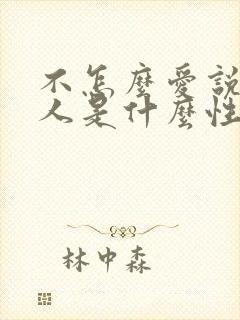 不怎麼愛說
人是什麼性
林中森